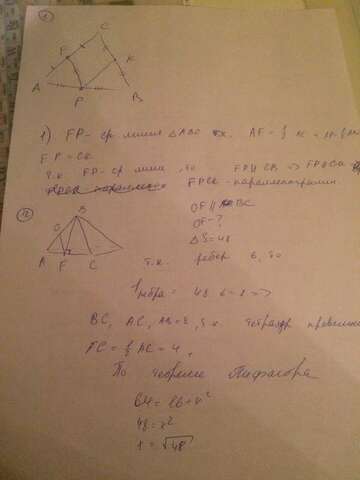 1
C
F
K
A
P
B
1) FP - ср. линия △ABC т.к. AF =
FP = CK
т.к. FP - ср. линия, то FP || CB => FP || CK
FPCK - параллелограмм.
12
B
A F C
OF || BC
OF - ?
△S = 48
т.к. ребер 6, то
1 ребра = 48 : 6 = 8 =>
BC, AC, AB = 8, т.к. тетраэдр
FC = AC = 4,
По теореме Пифагора
64 = 16 + x²
48 = x²
x = √48